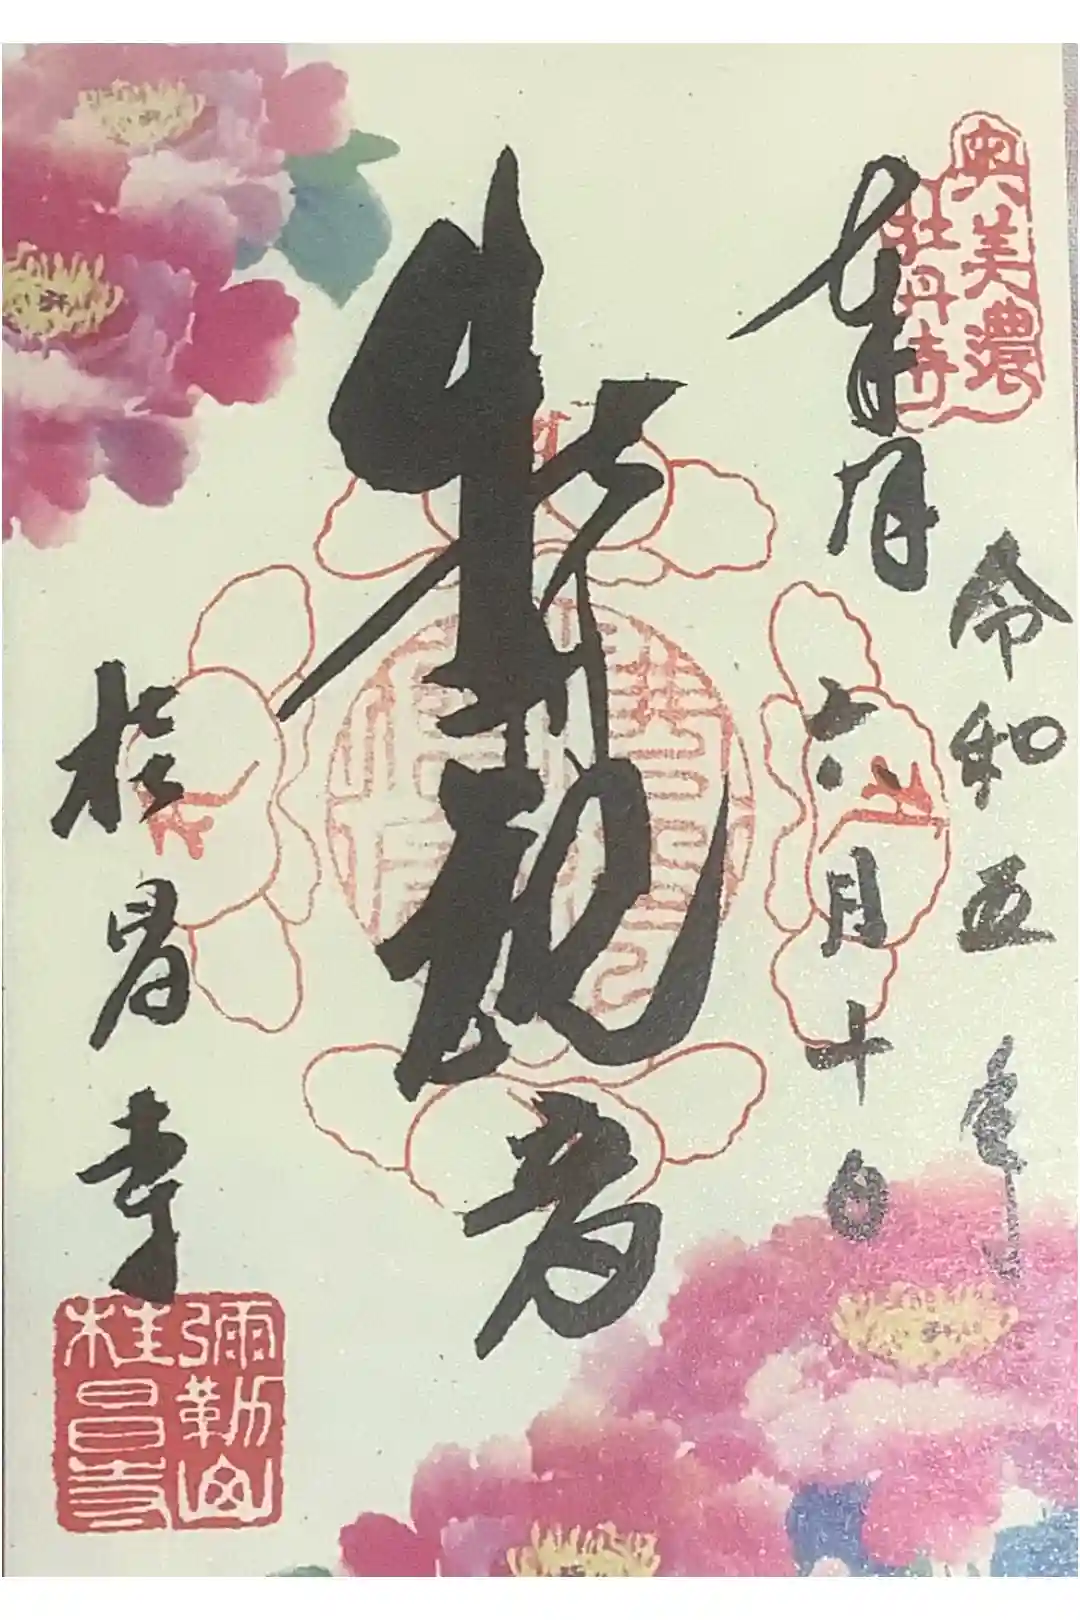 奥美濃
牡丹寺
奉拝
令和五年
六月十日
牡丹観音
桂昌寺
彌勒山
桂昌寺